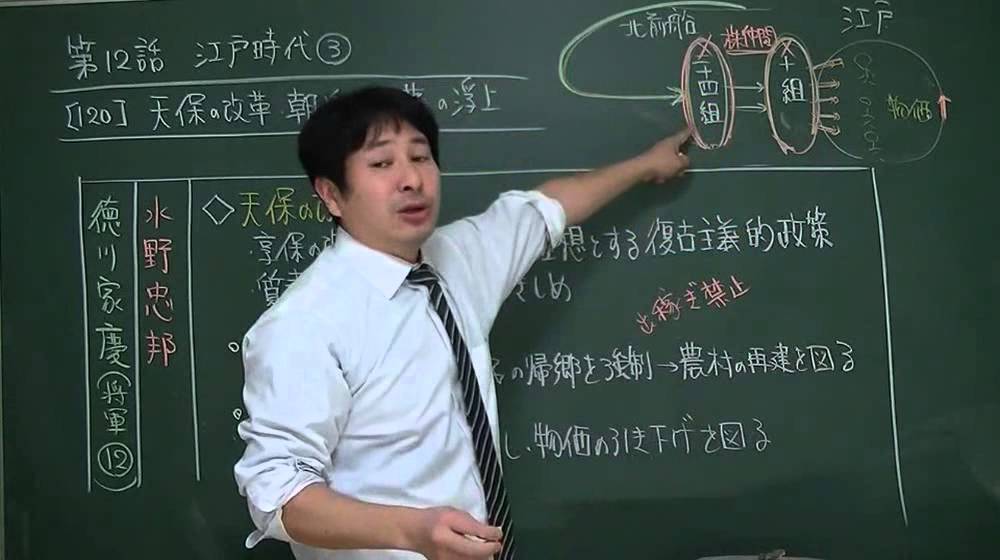 第12話 江戸時代③
[120] 天保の改革 の浮上
北前船
二十四組
株仲間
十組
江戸
物価
徳川家慶(将軍⑫)
水野忠邦
◇天保の改
享保の 想とする復古主義的政策
しめ
出稼ぎ禁止
の帰郷を強制→農村の再建を図る
し、物価の引き下げを図る